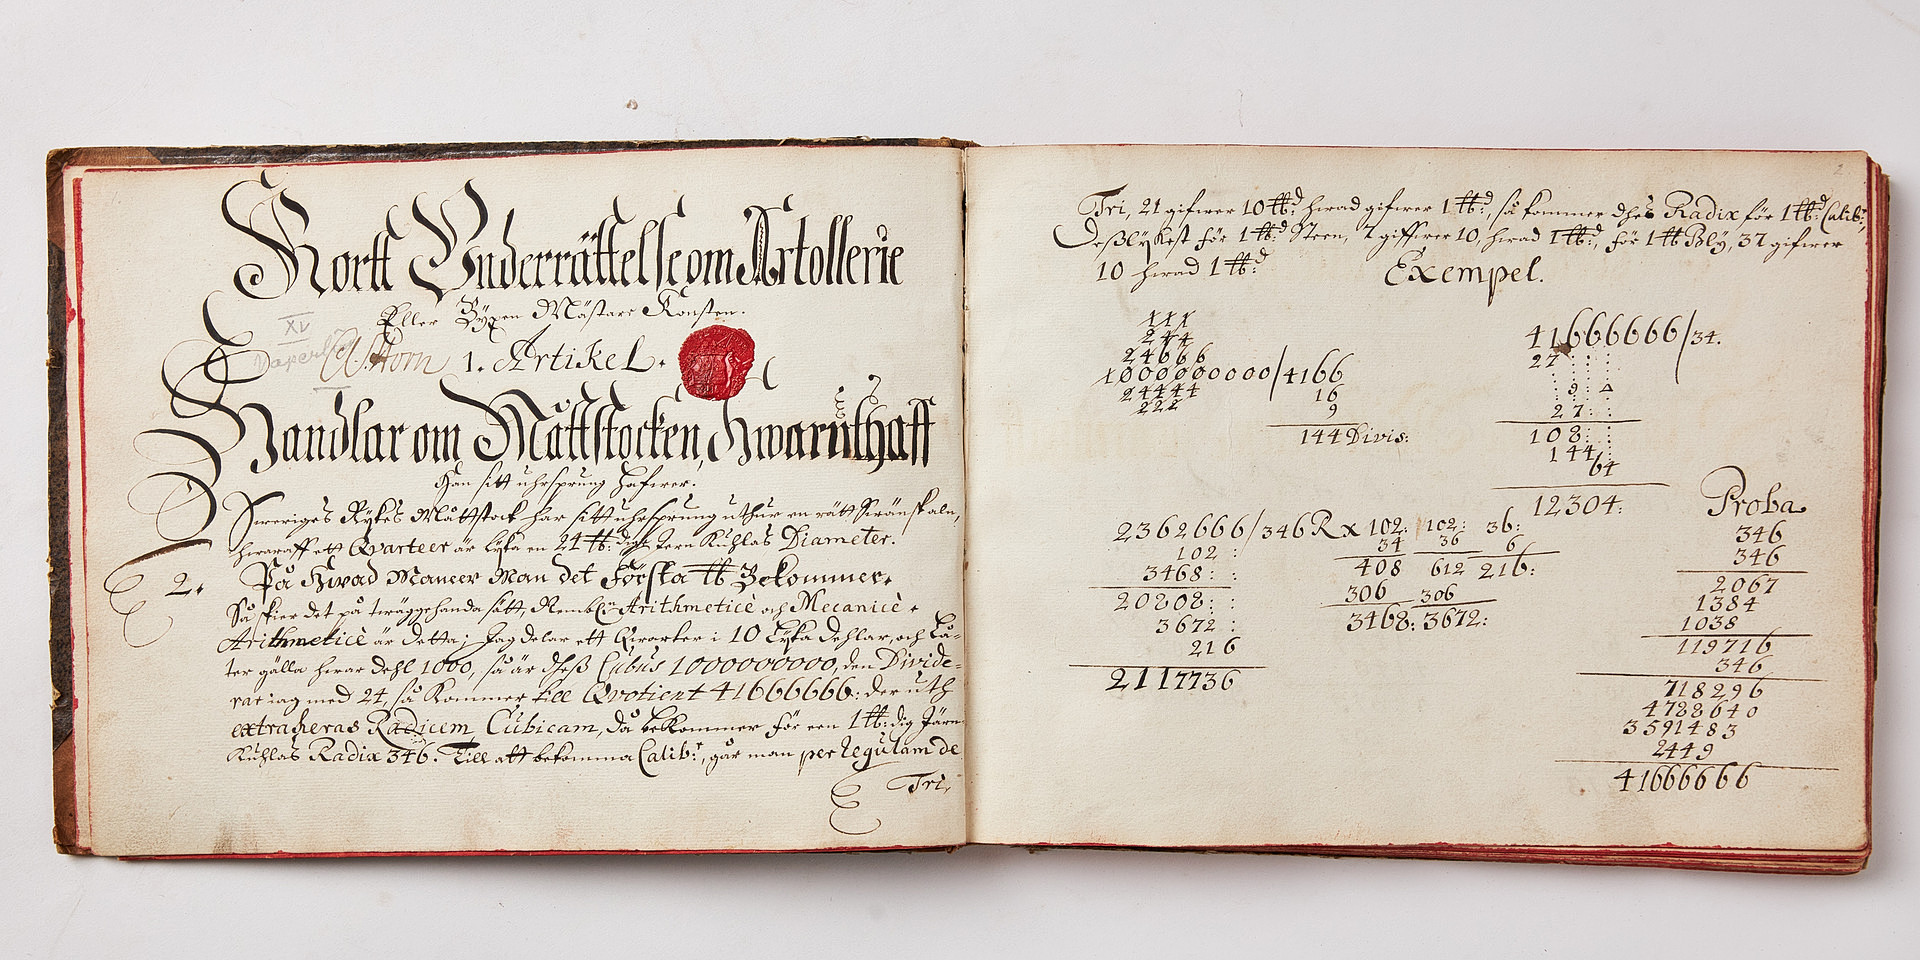 Kortt Underrättelse om Artollerie
Eller Byxen Mästare Konsten.
XV
1. Artikel.
Handlar om Måttstocken, Hwaruthaff
Han sitt uhrsprung hafwer.
Sweriges Rykes Måttstock har sitt uhrsprung uthur en rätt Swänsk aln,
hwaraff ett Qvarteer är lyka en 24 ℔: dig Jern Kuhlas Diameter.
2. På Hwad Maneer Man det Första ℔ Bekommer.
Så skier det på twäggehanda sätt, Arithmeticè och Mecanicè.
Arithmeticè är detta; Jag delar ett Qwarter i 10 Lyka dehlar, och Lå-
ter gälla hwar dehl 1000, så är dheß Cubus 1000000000, den Divide-
rar iag med 24, så Kommer till Qvotient 41666666: der uth
extraheras Radicem Cubicam, då bekommer för een 1 ℔: dig Järn
Kuhlas Radix 346. Till att bekomma Calibr, går man per regulam de
Tri,
2
Tri, 21 gifwer 10 ℔d: hwad gifwer 1 ℔d:, så kommer dhes Radix för 1 ℔d: Calibr,
Deßlykest för 1 ℔d: Steen, 7 giffwer 10, hwad 1 ℔d:, för 1 ℔ Bly, 37 gifwer
10 hwad 1 ℔d:
Exempel.
111
244
24666
1000000000/4166
24444
222
16
9
144 Divis:
41666666/34.
27
27:
108:
144
64
12304:
2362666/346 Rx 102: 102: 36:
102 : 34 36 6
3468: : 408 612 216:
20808: : 306 306
3672 : 3468: 3672:
216
2117736
Proba
346
346
2067
1384
1038
119716
346
718296
4788640
3591483
2449
41666666